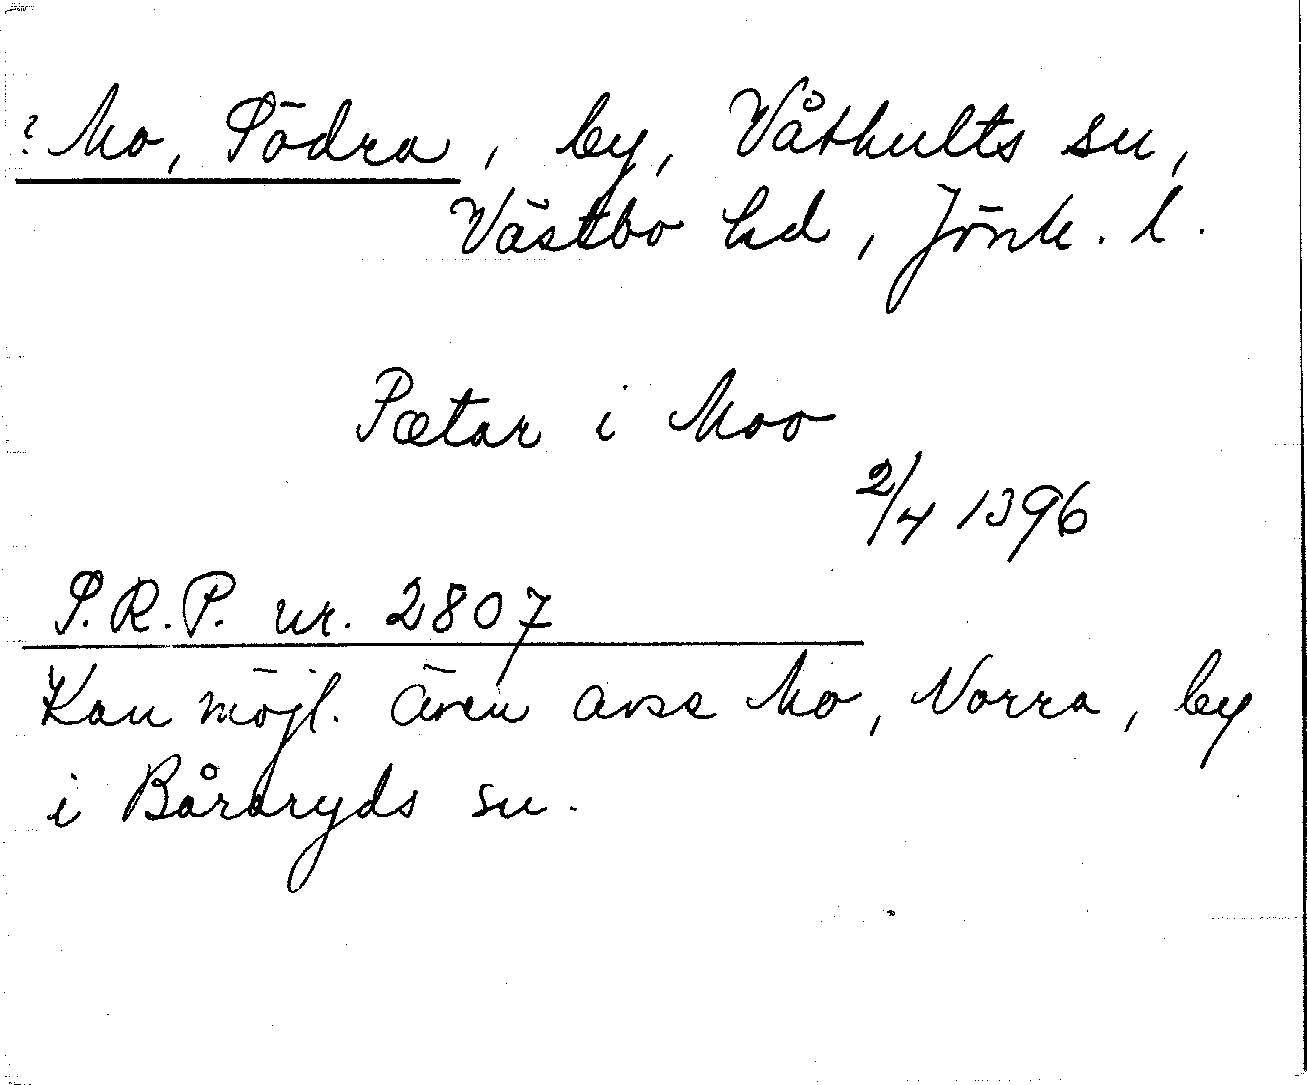 ? Mo, Södra, by, Våthults sn,
Västbo hd, Jönk. l.
Pætar i Moo
2/4 1396
S.R.P. nr. 2807
Kan möjl. även avse Mo, Norra, by
i Båraryds sn.